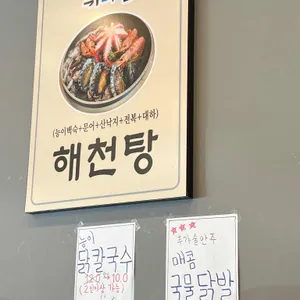 (능이백숙+문어+산낙지+전복+대하)
해천탕
능이
닭칼국수
(2인이상 가능)
★★★
추가술안주
매콤
국물닭발